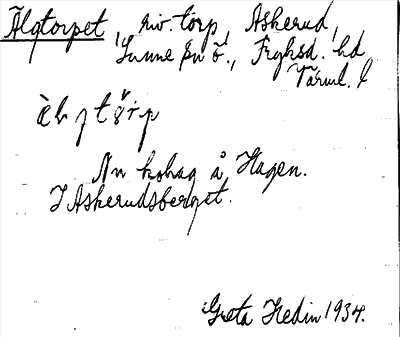 Älgtorpet, riv. torp, Askerud,
Sunne sn ö., Fryksd. hd
Värml. l
Nu kohag å Hagen.
I Askerudsberget.
Greta Hedin 1934.